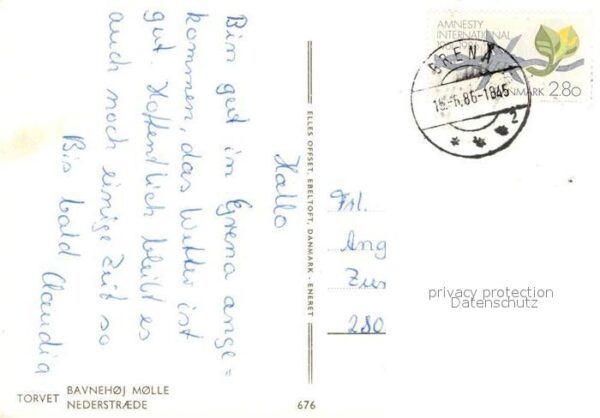 Hallo
Bin gut in Grena ange=
kommen, das Wetter ist
gut. Hoffentlich bleibt es
auch noch einige Zeit so
Bis bald Claudia
TORVET BAVNEHØJ MØLLE
NEDERSTRÆDE
ELLES OFFSET, EBELTOFT, DANMARK · ENERET
676
AMNESTY
INTERNATIONAL
DANMARK 2.80
GRENÅ
1845
2
Frl.
Ang
Zur
280
privacy protection
Datenschutz